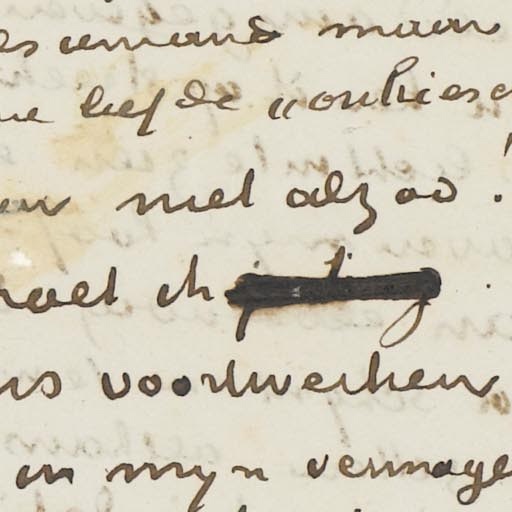 es iemand maar
ne liefde „onkiesc
en niet alzoo!
moet ik
ns voortwerken
in mijn vermoge